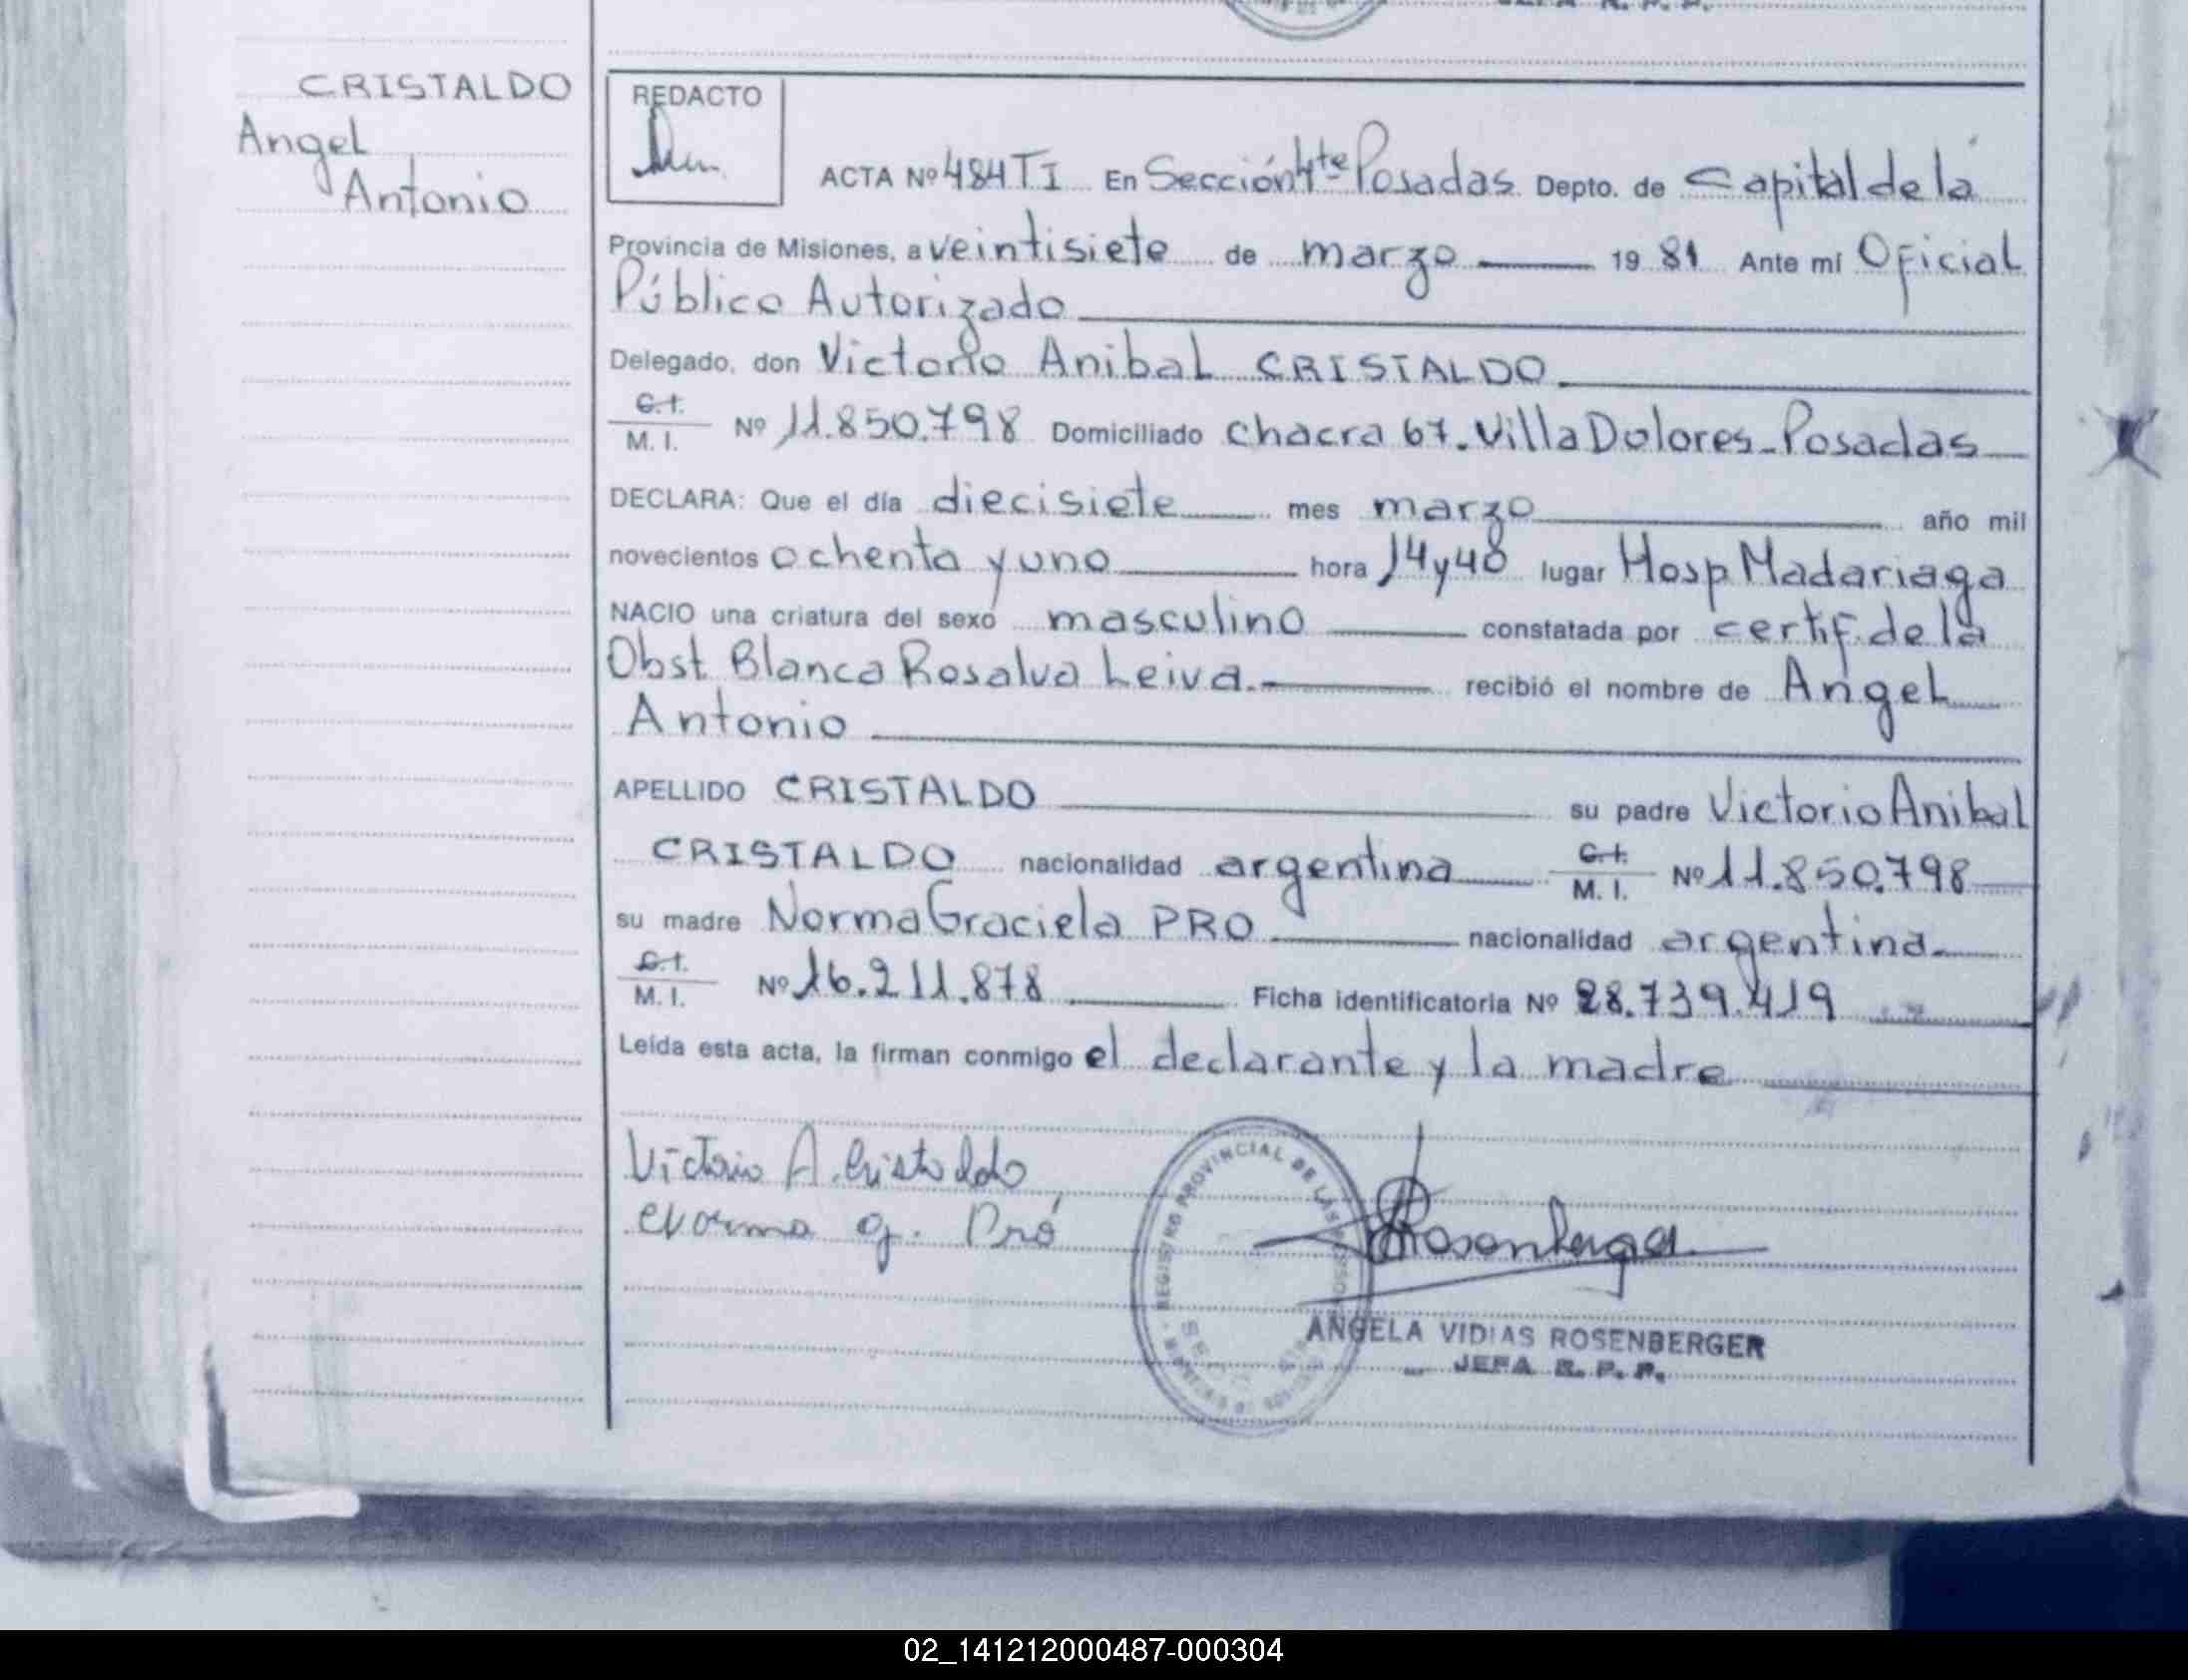 CRISTALDO
Angel
Antonio
REDACTO
ACTA Nº 484 TI En Sección 4te Posadas Depto. de Capital de la
Provincia de Misiones, a veintisiete de marzo 1981 Ante mí Oficial
Público Autorizado
Delegado, don Victorio Anibal CRISTALDO
C.I.
M. I. Nº 11.850.798 Domiciliado Chacra 67. Villa Dolores - Posadas
DECLARA: Que el día diecisiete mes marzo año mil
novecientos ochenta y uno hora 14 y 40 lugar Hosp Madariaga
NACIO una criatura del sexo masculino constatada por certif. de la
Obst Blanca Rosalva Leiva. recibió el nombre de Angel
Antonio
APELLIDO CRISTALDO su padre Victorio Anibal
CRISTALDO nacionalidad argentina C.I.
M. I. Nº 11.850.798
su madre Norma Graciela PRO nacionalidad argentina
C.I.
M. I. Nº 16.211.878 Ficha identificatoria Nº 28.739.419
Leída esta acta, la firman conmigo el declarante y la madre
Victorio A. Cristaldo
Norma G. Pró
Rosenberger
REGISTRO PROVINCIAL DE LAS PERSONAS
ANGELA VIDIAS ROSENBERGER
JEFA R. P. P.
02_141212000487-000304